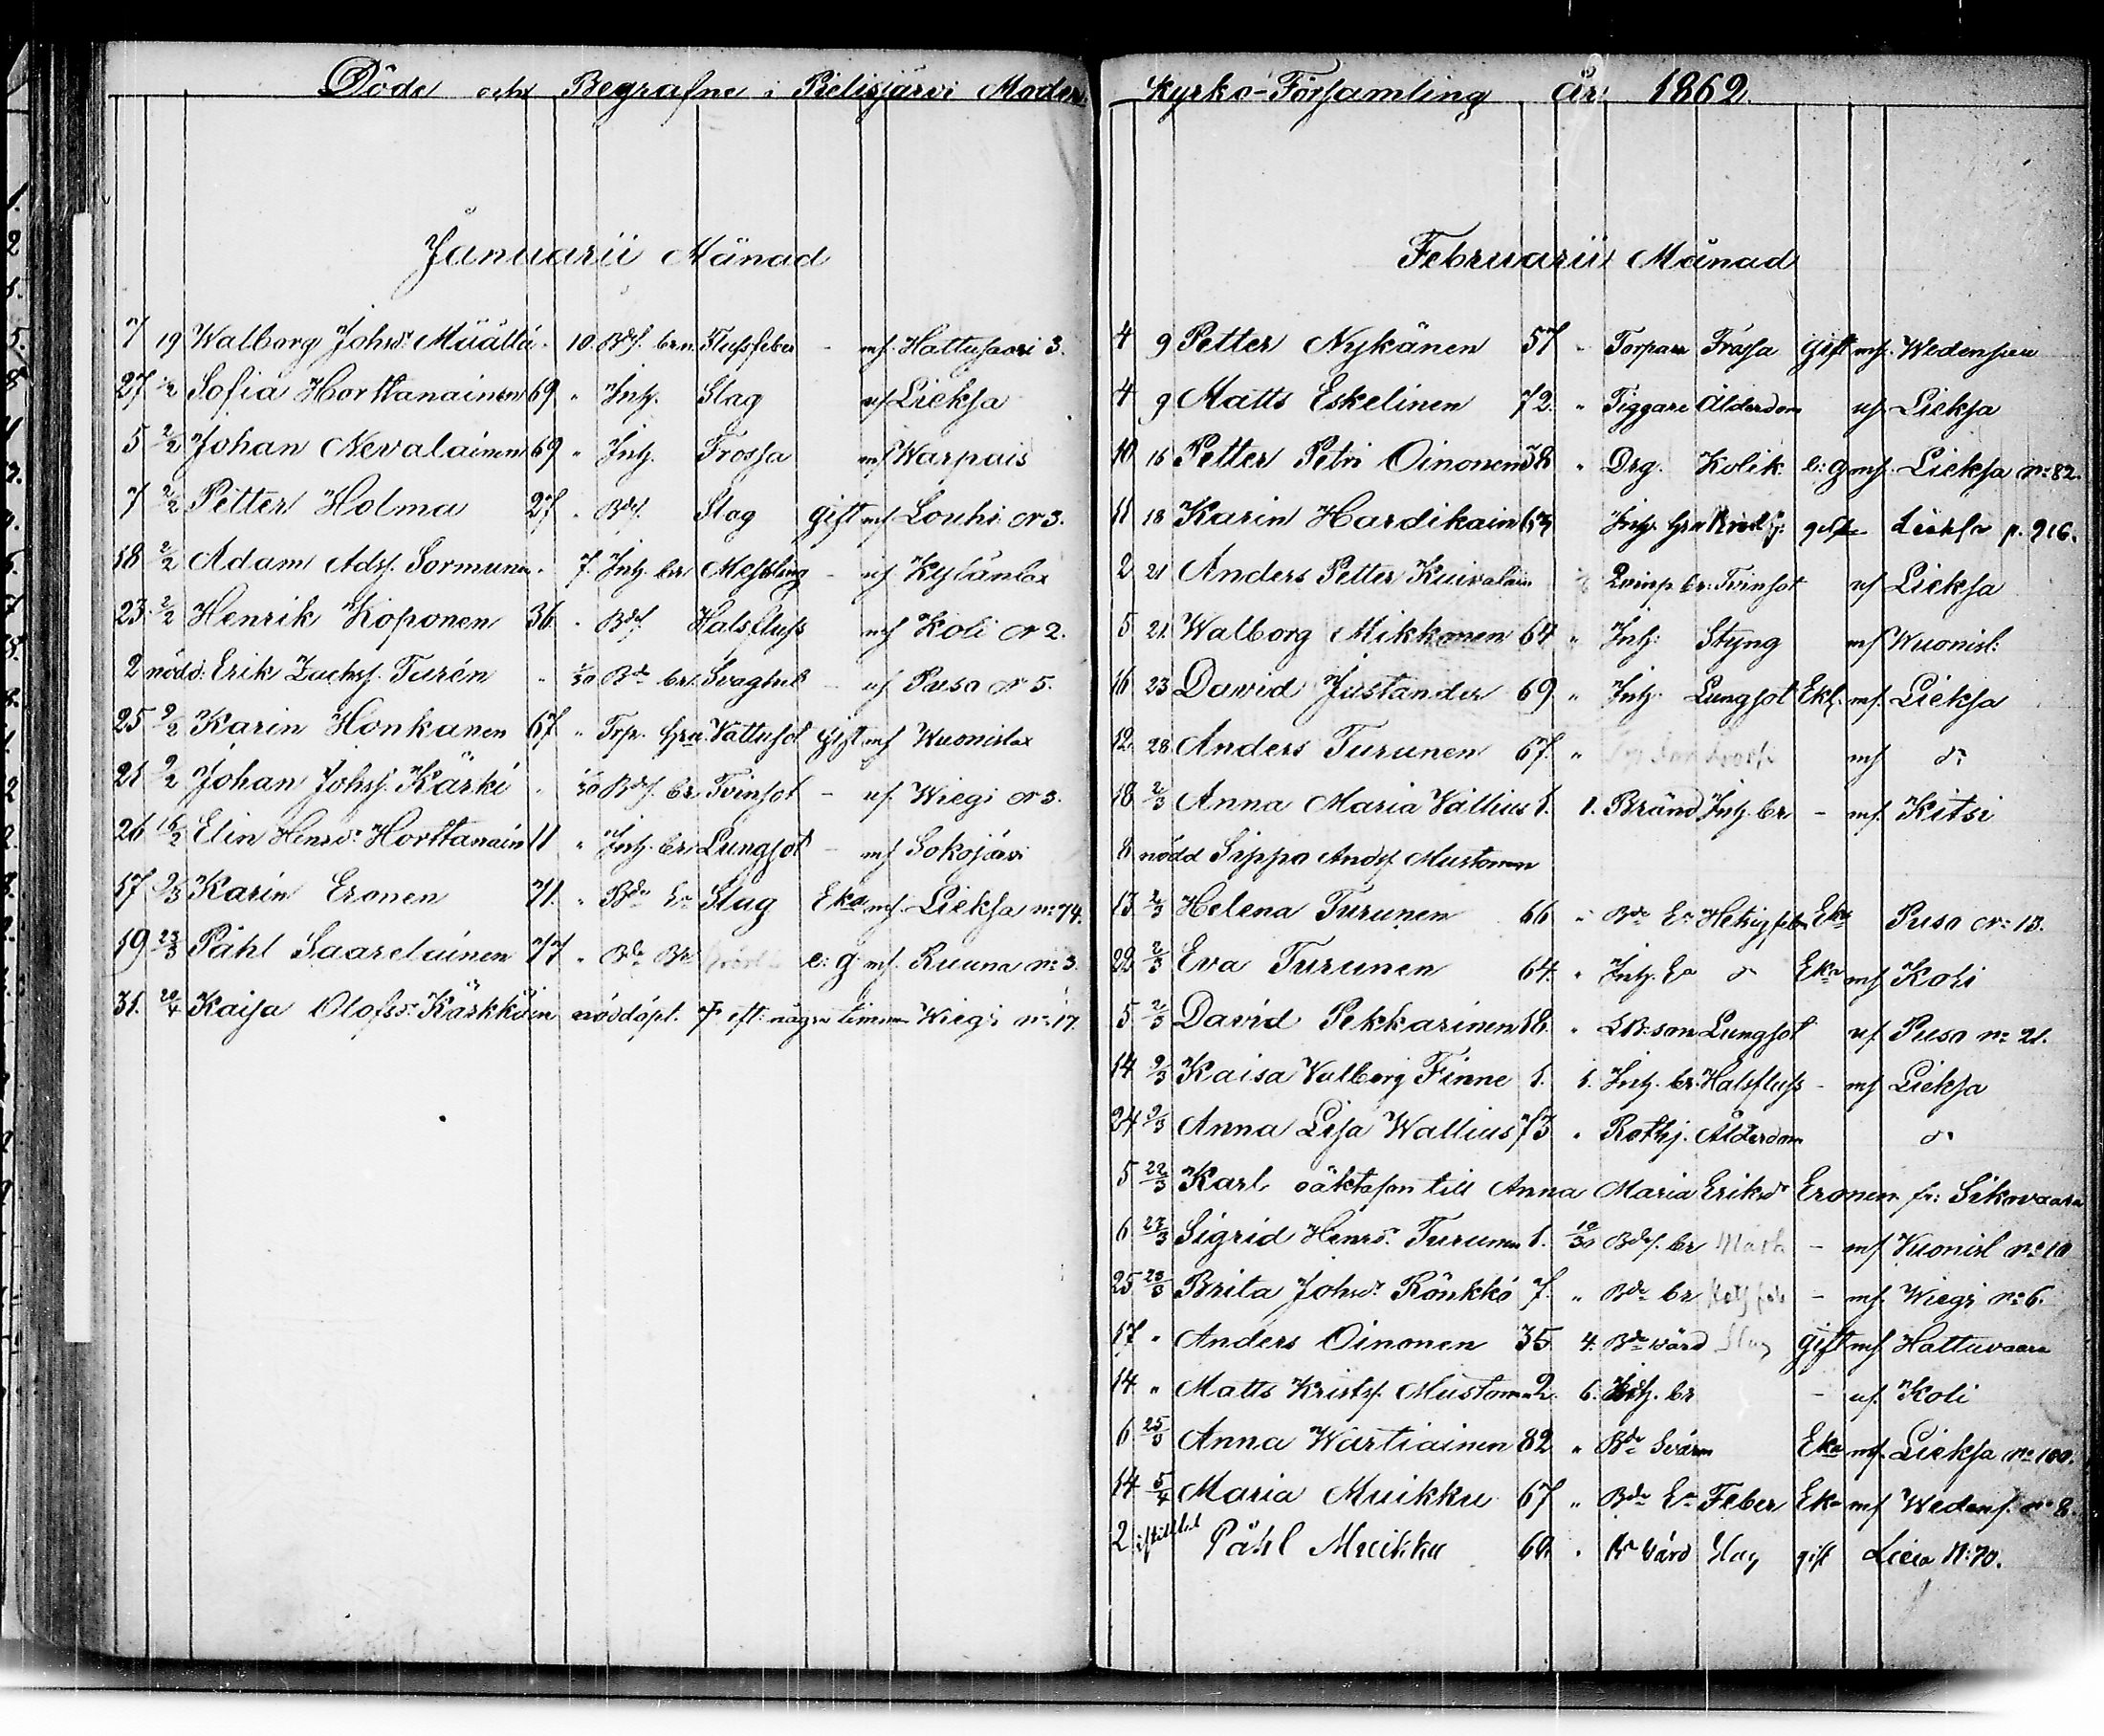 Döde och Begrafne i Pielisjärvi Moder
Januarii Månad
7 19 Walborg Johsdr Määttä 10. Bds. brn. Flussfeber - mf. Hattusaari 3.
27 2/2 Sofia Horttanainen 69 " Inh. Slag uf Lieksa
5 2/2 Johan Nevalainen 69 " Inh. Trossa mf Warpais
7 2/2 Petter Holma 27 " Bds. Slag gift mf Louhi No 3.
18 2/2 Adam Ads. Sormunen 7. Inh. br Messling - uf Kylänlax
23. 2/2 Henrik Koponen 36 " Bds. Halsfluss mf Koli No 2.
2 nödd: Erik Zachss. Turén " 1/30 Bde br. Svaghet - uf Puso No 5.
25 9/2 Karin Honkanen 67 " Torp. hru. Vattusot gift mf Wuonislax
21 9/2 Johan Johss. Kärki " Bds. br Tvinsot - uf. Wiegi No 3.
26 16/2 Elin Henrdr Horttanain 11 " Inh. br Lungsot - mf Sokojärvi
17 Karin Eronen 71. " Bde Ea Slag Eka mf. Lieksa No 74.
19 23/3 Påhl Saarelainen 77 " e: g mf. Ruuna No 3.
31. 20/4 Kaisa Olofsdr Kärkkäin nöddöpt. † eft: några timmar Wiegi No 17.
Kyrko-Församling år: 1862.
Februarii Månad
4 9 Petter Nykänen 57 " Torpare Trossa gift mf. Wedensuu
4 9 Matts Eskelinen 72. " Tiggare Ålderdom uf. Lieksa
10 16 Petter Petri Oinonen 38 " Drg. Kolik e: g mf. Lieksa No 82.
11 18 Karin Hardikain 63 Inh. hru gift Lieksa p. 916.
2 21 Anders Petter Kuivalain br: Tvinsot uf Lieksa
5 21. Walborg Mikkonen 64 " Inh: Styng mf Wuonisl:
16 23 David Justander 69 " Inh. Lungsot Ekl. mf. Lieksa
12. 28 Anders Turunen 67. " mf do
18 2/3 Anna Maria Vallius 1. 1. Bränd Inh. br - mf. Kitsi
8 nödd Sippo Andss Mustonen
13 2/3 Helena Turunen 66 " Bde Ea Hetsigfeber Eka Puso No 13.
22 2/3 Eva Turunen 64. " Inh. Ea do Eka mf Koli
5 2/3 David Pekkarinen 18. " LB: son Lungsot uf Puso No 21.
14 9/3 Kaisa Valborg Finne 1. 1. Inh. br. Halsfluss - mf Lieksa
24 9/3 Anna Lisa Wallius 73 " Rothj. Ålderdom do
5 22/3 Karl oäktason till Anna Maria Eriksdr Eronen fr: Sikovaara
6 23/3 Sigrid Henrdr Turunen 1. 10/30 Bds. br - mf Vuonisl No 10
25 23/3 Brita Johsdr Rönkkö 7. " Bde br - mf. Wiegi No 6.
17 " Anders Oinonen 35 4. Bde wärd Slag gift mf Hattuvaara
14 " Matts Kristss. Mustonen 2. 6. Inh. br - uf. Koli
6 25/3 Anna Wartiainen 82 " Bde Svärm Eka mf. Lieksa No 100.
14 5/4 Maria Muikku 67 " Bde Ea Feber Eka mf Wedens. No 8.
2 Påhl Muikku 60. " Bde Värd Slag gift N:70.